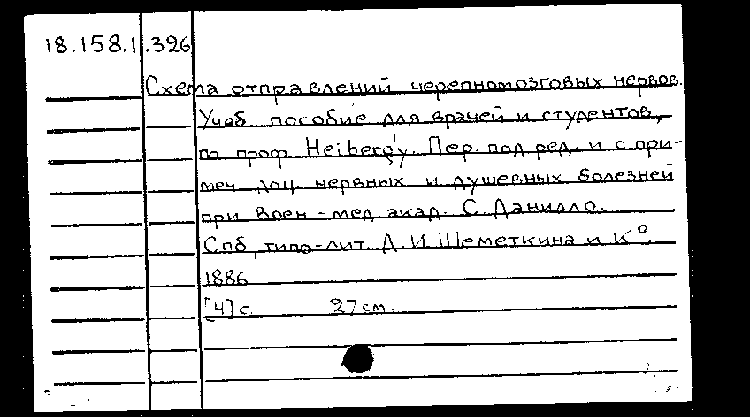 18.158.1.326
Схема отправлений черепномозговых нервов.
Учеб. пособие для врачей и студентов,
по проф. Heiberg'у. Пер. под ред. и с при-
меч. доц. нервных и душевных болезней
при Воен-мед. акад. С. Данилло.
Спб, типо-лит. Д. И. Шеметкина и К°.
1886
[4] с. 27 см.